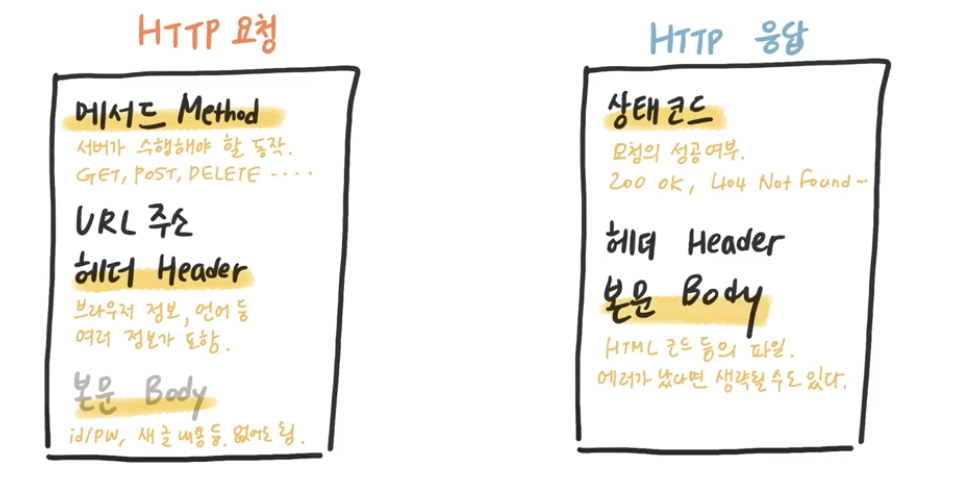 HTTP 요청
메서드 Method
서버가 수행해야 할 동작.
GET, POST, DELETE ....
URL 주소
헤더 Header
브라우저 정보, 언어 등
여러 정보가 포함.
본문 Body
id/PW, 새 글 내용 등. 없어도 됨.
HTTP 응답
상태코드
요청의 성공여부.
200 OK, 404 Not Found...
헤더 Header
본문 Body
HTML 코드 등의 파일.
에러가 났다면 생략될 수도 있다.